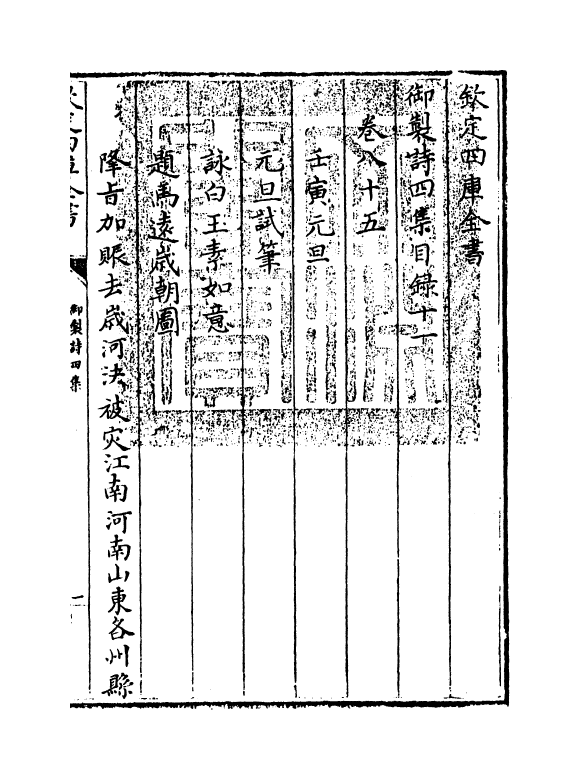 欽定四庫全書
御製詩四集目錄十一
卷八十五
壬寅元旦
元旦試筆
詠白玉素如意
題馬遠歲朝圖
降旨加賑去歲河決被灾江南河南山東各州縣
御製詩四集
一